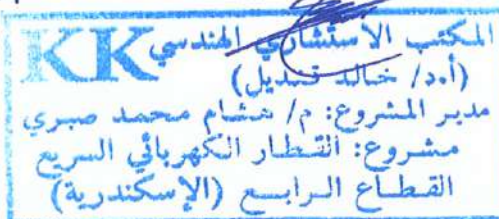 المكتب الأستشاري الهندسي
KK
(أ.د/ خالد قنديل)
مدير المشروع: م/ هشام محمد صبري
مشروع: القطار الكهربائي السريع
القطاع الرابع (الإسكندرية)